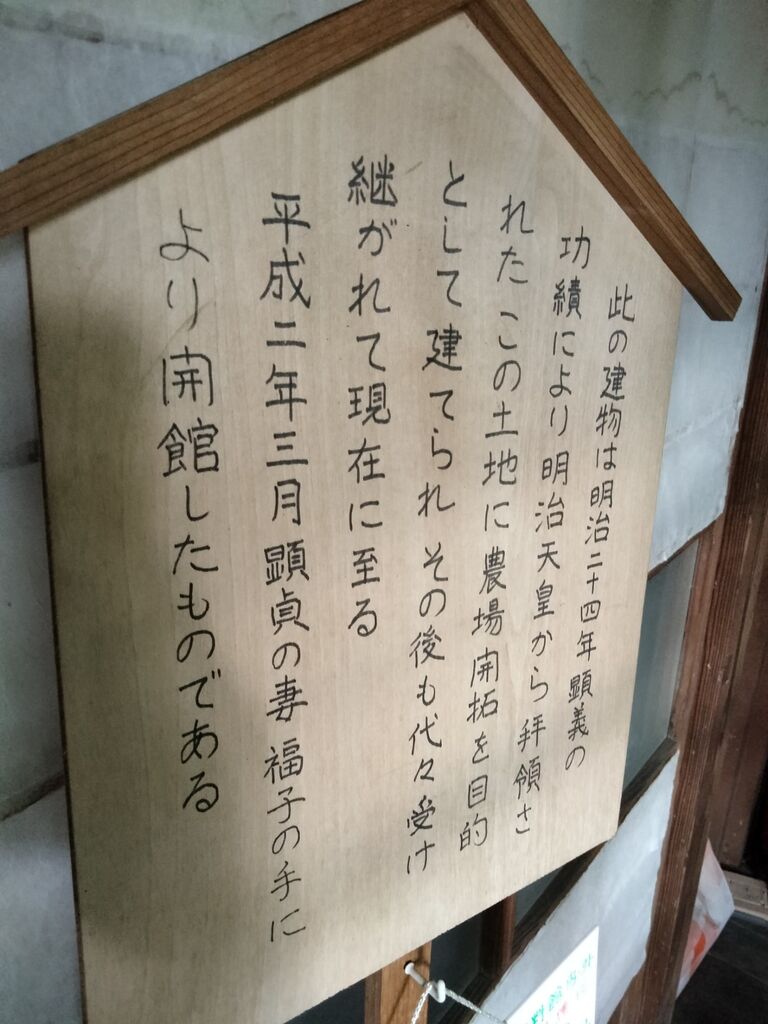 此の建物は明治二十四年顕義の
功績により明治天皇から拝領さ
れたこの土地に農場開拓を目的
として建てられその後も代々受け
継がれて現在に至る
平成二年三月顕貞の妻福子の手に
より開館したものである